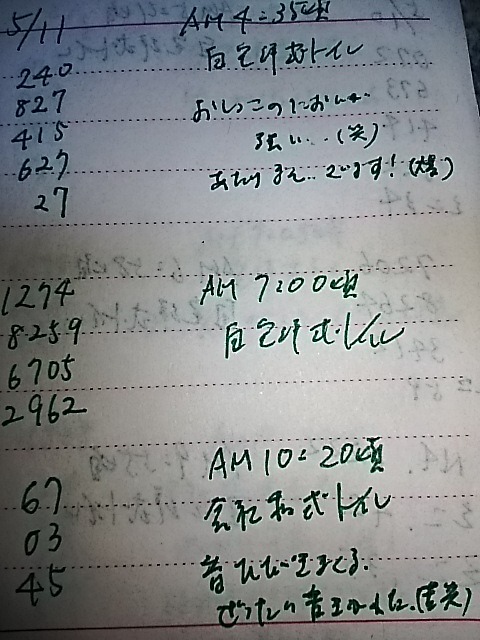 5/11 AM 4:35頃
240 自宅洋式トイレ
827 おしっこのにおいが
415 強い...(笑)
627 あたりまえ..でいます!(爆)
27
1274 AM 7:00頃
8259 自宅洋式トイレ
6705
2962
67 AM 10:20頃
03 会社和式トイレ
45 音
ぜったい音